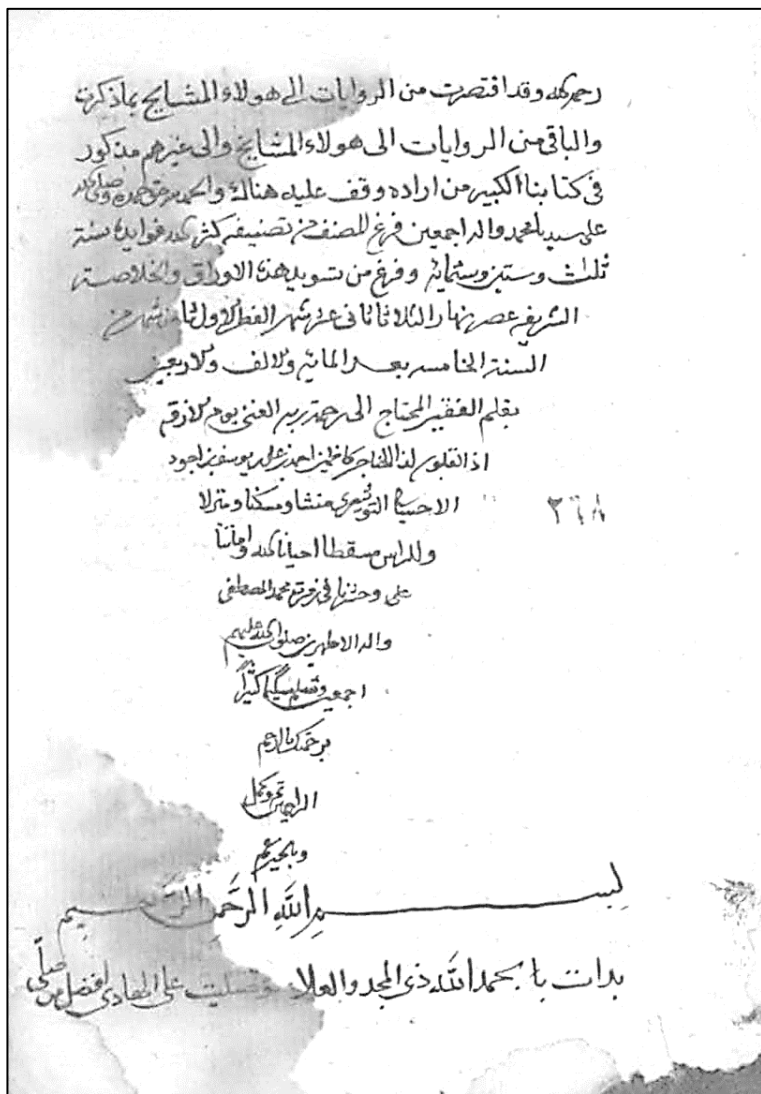 رحمه الله وقد اقتصرت من الروايات الى هولاء المشايخ بما ذكرت
والباقي من الروايات الى هولاء المشايخ والى غيرهم مذكور
في كتابنا الكبير من اراده وقف عليه هناك والحمد لله حق حمده وصلى الله
على سيدنا محمد واله اجمعين فرغ المصنف من تصنيفه كثر الله فوايده سنة
ثلث وستين وستمائه وفرغ من تسويد هذه الاوراق والخلاصة
الشريفه عصر نهار الثلاثا ثاني عشر شهر الفطر الاول من
السنة الخامسه بعد المائه والالف والاربعين
بقلم الفقير المحتاج الى رحمة ربه الغني يوم لا رقم
احمد بن يوسف بن اجود
الاحسائي التويثيري منشا ومسكنا ومنزلا
٢٦٨
وللراس مسقطا احيانا الله واماتنا
على وحشرنا في زمرة محمد المصطفى
واله الاطهرين صلوات الله عليهم
اجمعين وسلم تسليما كثيرا
برحمتك يا ارحم
الراحمين تم وكمل
وبالخير عم
بسم الله الرحمن الرحيم
بدات با بحمد الله ذي المجد والعلا وصليت على الهادي افضل من صلى